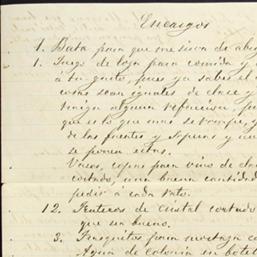 Encargos
1. Bata para que me sirva de abri
1. Juego de loza para comida y
á tu gusto, pues ya sabes el
cosas sean iguales de clase y
tenga alguna refaccion, p
que es lo que mas se rompe, y
de las fuentes y soperas y
se ponen estas.
Vasos, copas para vino de cla
cortado, una buena cantidad
pedir á cada rato.
12. Fruteros de cristal cortado
que sea bueno.
3. Frasquitos para mostaza co
Agua de Colonia en botel